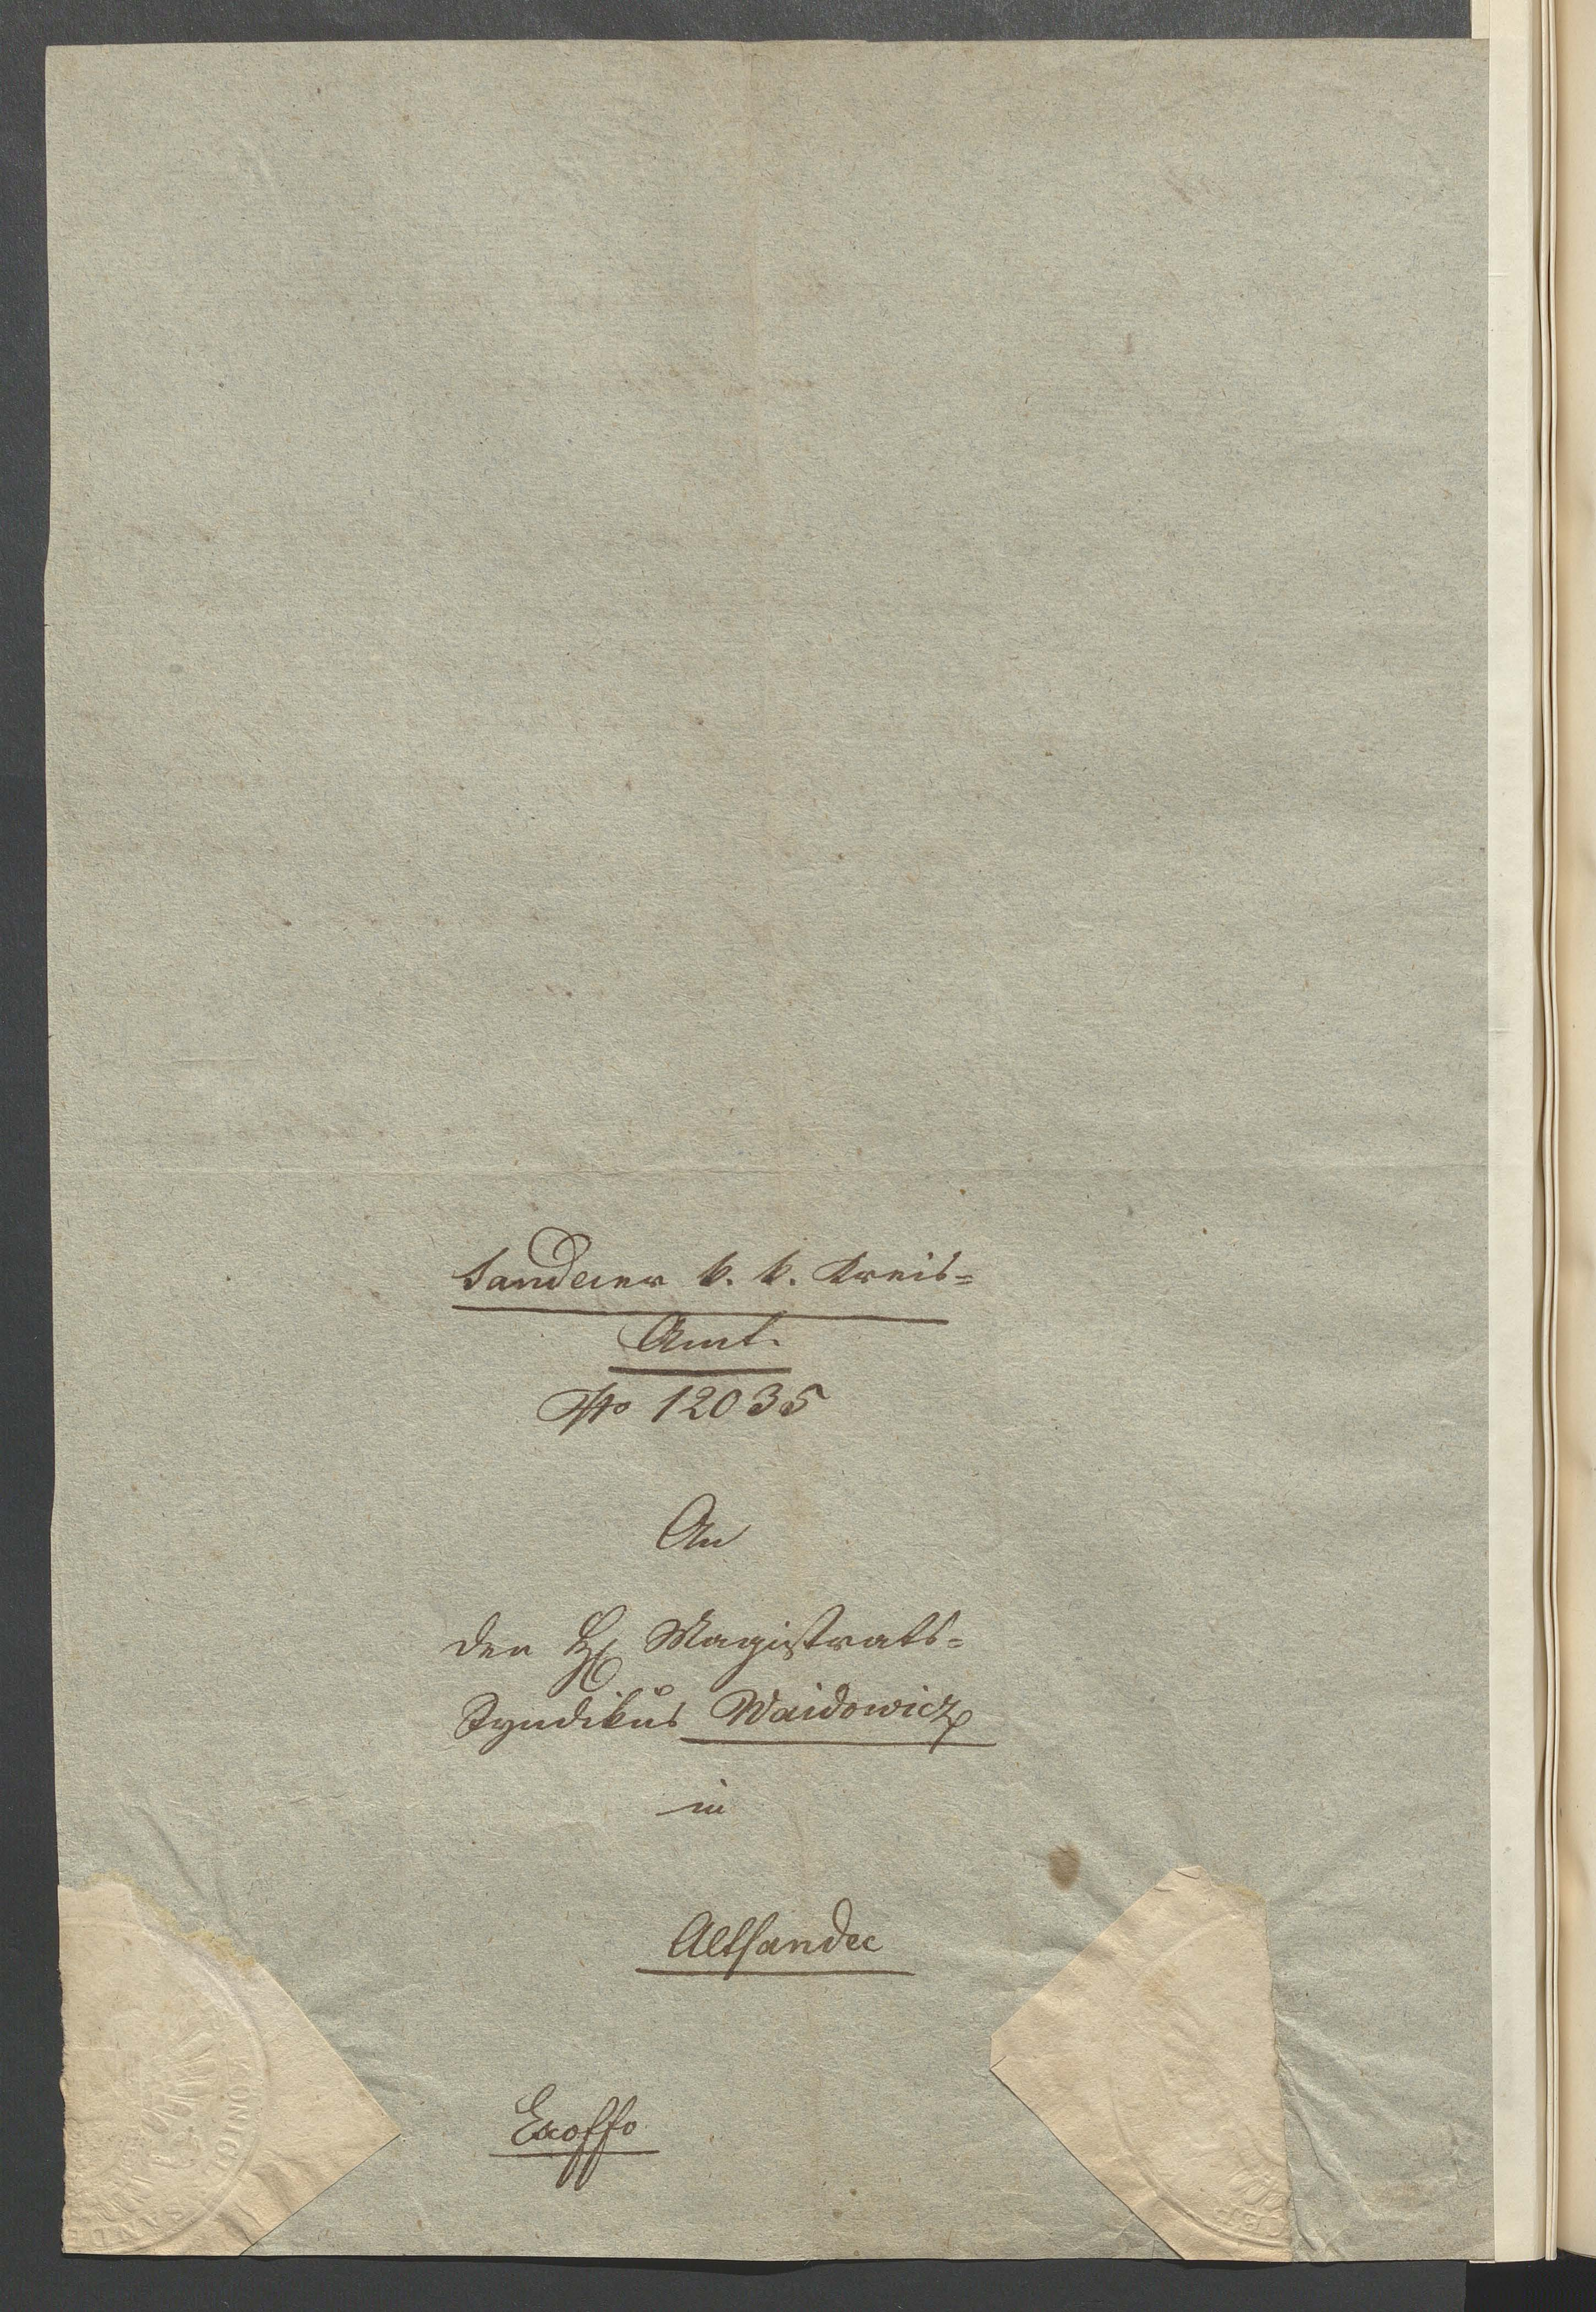 Sandecer k. k. Kreis=
Amt.
No 12035
An
den H Magistrats=
Syndikus Waidowicz
in
Altsandec
Exoffo
KÖNIGL
SAND